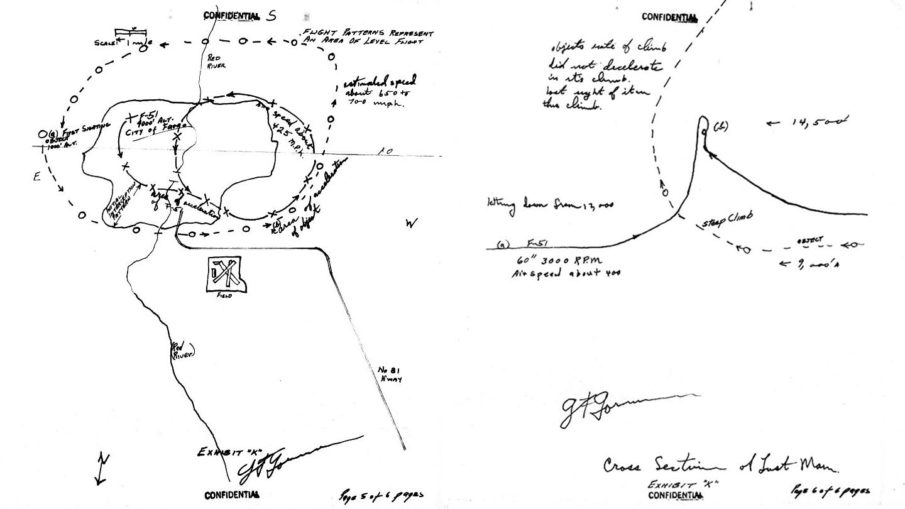 CONFIDENTIAL S
FLIGHT PATTERNS REPRESENT
AN AREA OF LEVEL FLIGHT
SCALE: 1 mile
RED
RIVER
estimated speed
about 650 to
700 mph.
F-51
4000' ALT.
CITY OF Fargo
speed about
425 M.P.H.
(a) FIRST SIGHTING
OBJECT
1000' ALT.
E
10
Area of acceleration
of F-51
(b)
area of acceleration
of object
W
FIELD
RED
RIVER
No 81
H'WAY
EXHIBIT "K"
GFGorman
N
CONFIDENTIAL
Page 5 of 6 pages
CONFIDENTIAL
objects rate of climb
did not decelerate
in its climb.
Lost sight of it in
this climb.
(b)
← 14,500'
letting down from 13,000
steep climb
(a) F-51
OBJECT
60" 3000 RPM
Air speed about 400
← 9,000's
GFGorman
Cross Section of Last Man.
EXHIBIT "K"
CONFIDENTIAL
Page 6 of 6 pages